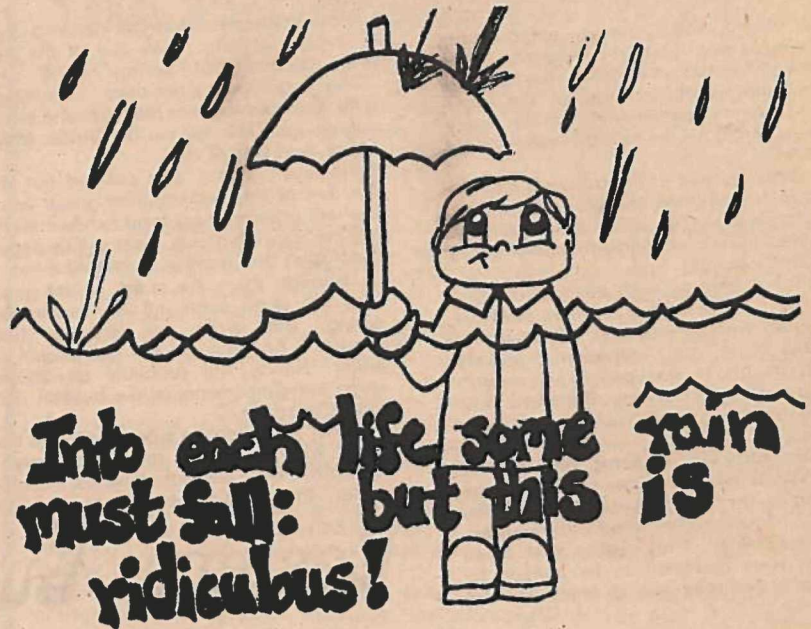 Into each life some rain
must fall: but this is
ridiculous!